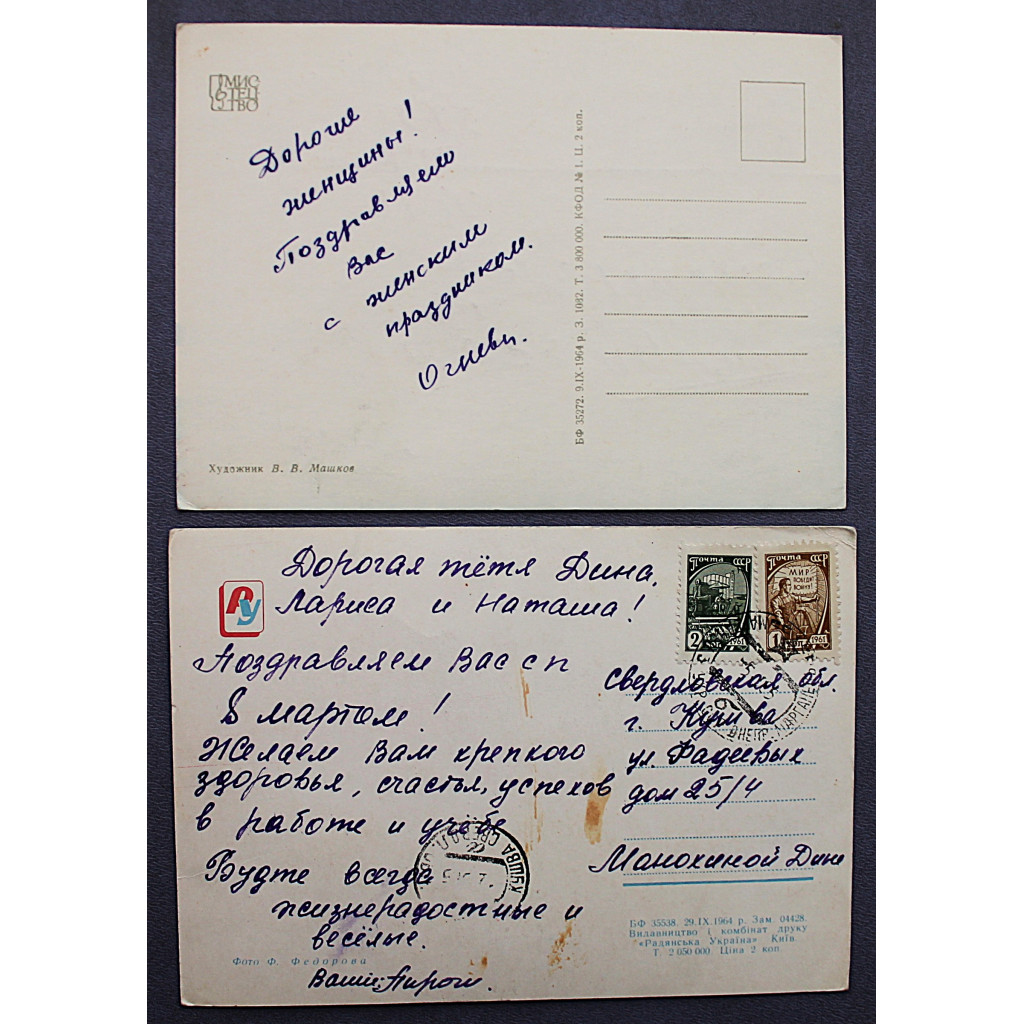 МИС
ТЕЦ
ТВО
Дорогие
женщины!
Поздравляем
Вас
с женским
праздником.
Огневы.
Художник В. В. Машков
БФ 35272. 9.IX-1964 р. З. 1082. Т. 3 800 000. КФОД № 1. Ц. 2 коп.
Дорогая тётя Дина,
Лариса и Наташа!
РУ
Поздравляем Вас с п
8 мартом!
Желаем Вам крепкого
здоровья, счастья, успехов
в работе и учёбе
Будте всегда
жизнерадостные и
весёлые.
Ваши:
Фото Ф. Федорова
Почта СССР
2 1961
Почта СССР
МИР
ПОБЕДИТ
ВОЙНУ!
1 коп 1961
Свердловская обл.
г. Кушва
ул. Фадеевых
дом 25/4
Манохиной Дине
КУШВА СВЕРДЛ.
БФ 35538. 29.IX.1964 р. Зам. 04428.
Видавництво і комбінат друку
«Радянська Україна» Київ.
Т. 2 050 000. Ціна 2 коп.